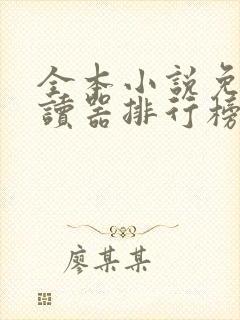 全本小說免
讀器排行榜
廖某某